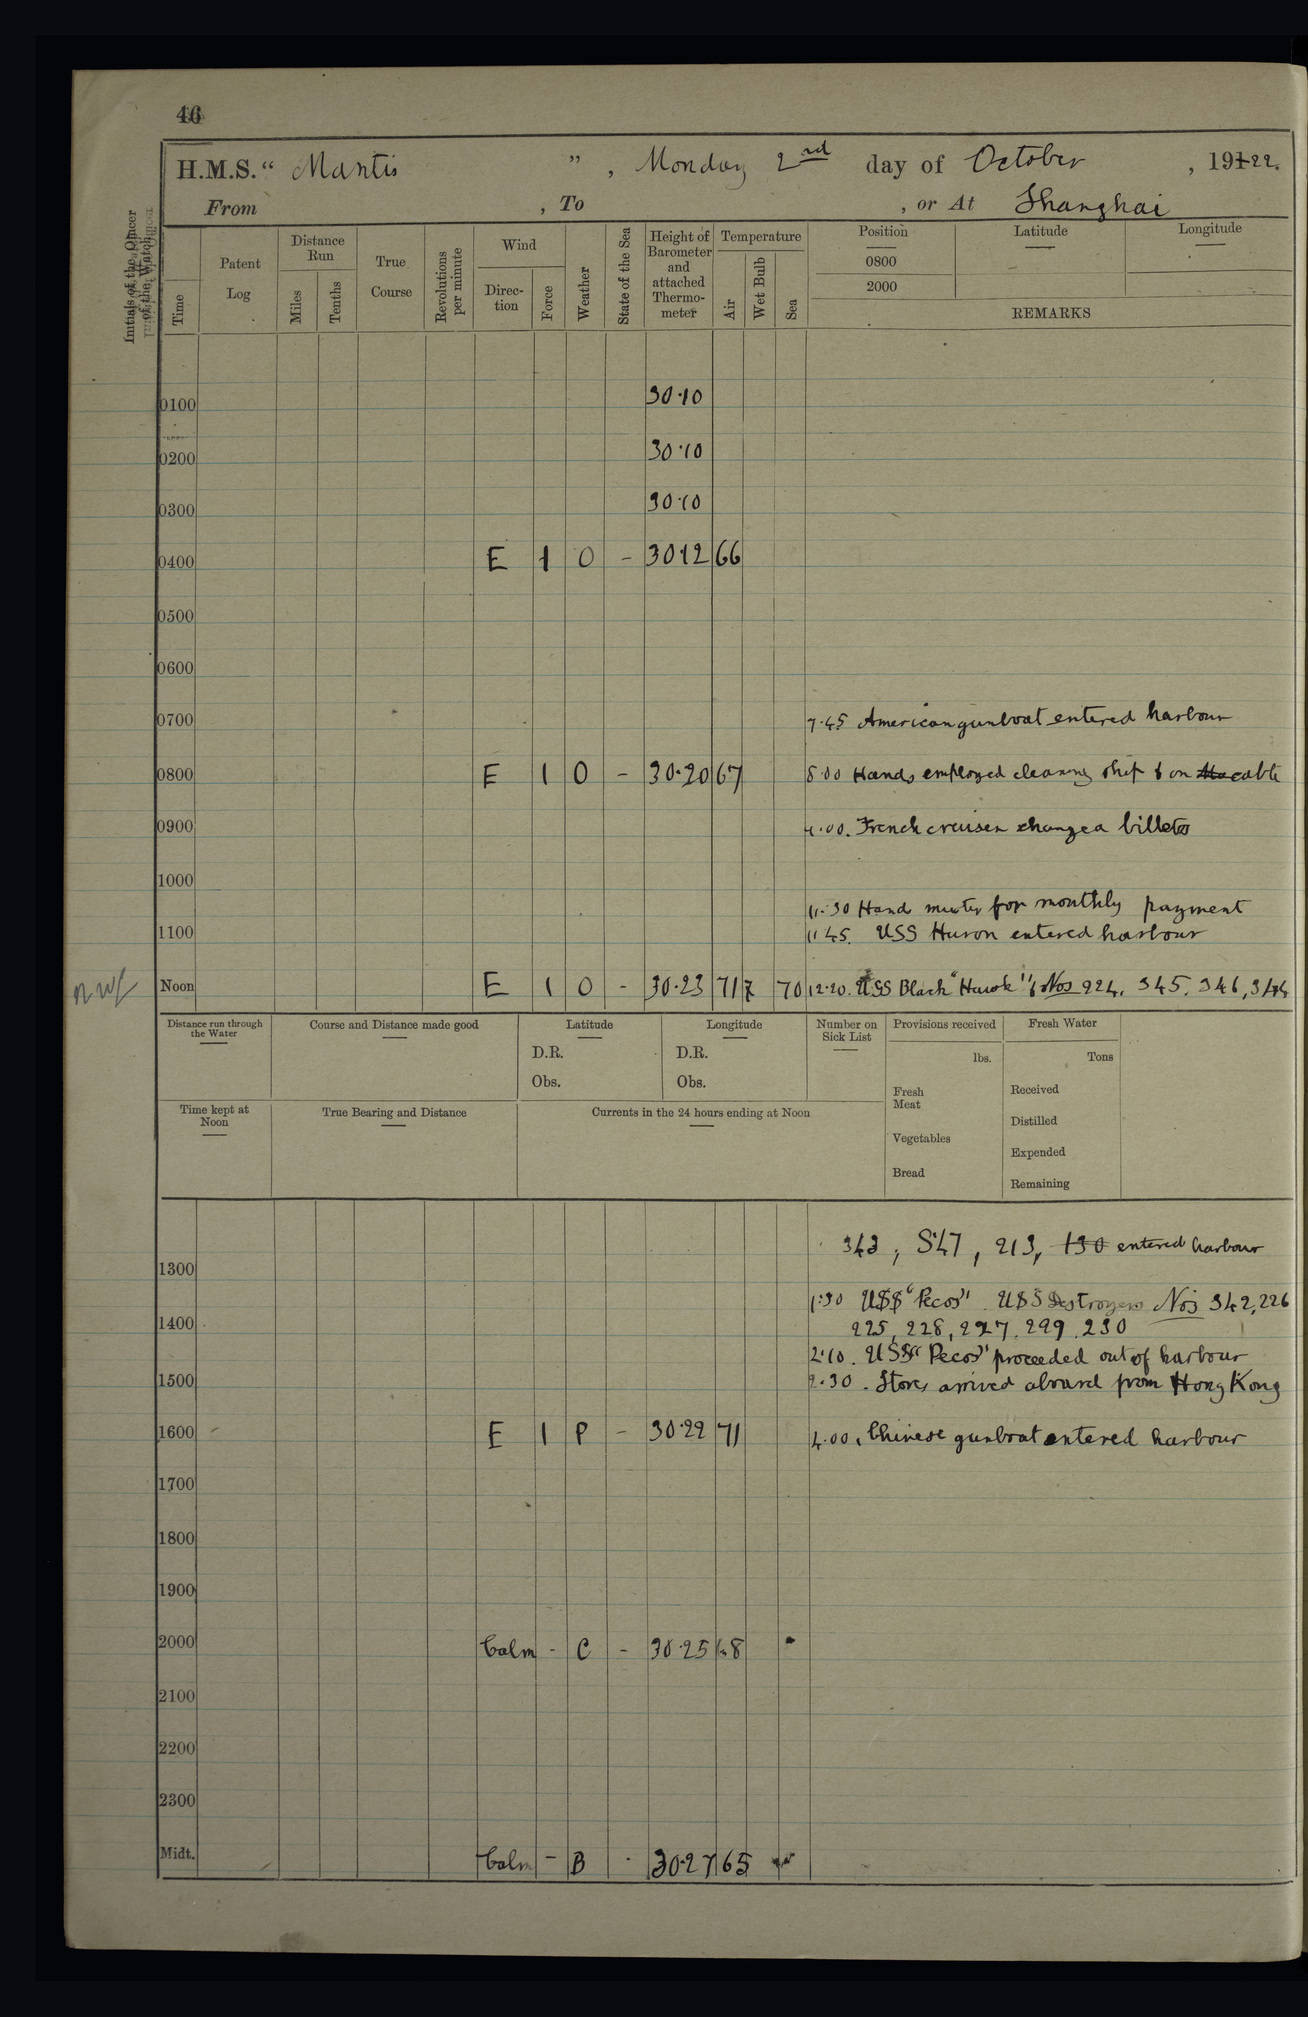 46
H.M.S. “ Mantis ”, Monday 2nd day of October, 19122.
From , To , or At Shanghai
Initials of the Officer of the Watch
Time
Patent Log
Distance Run
Miles
Tenths
True Course
Revolutions per minute
Wind
Direc-tion
Force
Weather
State of the Sea
Height of Barometer and attached Thermo-meter
Temperature
Air
Wet Bulb
Sea
Position
0800
2000
Latitude
Longitude
REMARKS
0100 30.10
0200 30.10
0300 30.10
0400 E 1 O - 30.12 66
0500
0600
0700 7.45 American gunboat entered harbour
0800 E 1 O - 30.20 67 8.00 Hands employed cleaning ship & on cable
0900 French cruiser change a billets
1000
11.30 Hand muster for monthly payment
1100 11 45. USS Huron entered harbour
Noon E 1 O - 30.23 71 70 12.20. USS Black "Hawk" & Nos 224. 345. 346, 344
Distance run through the Water
Course and Distance made good
Latitude
D.R.
Obs.
Longitude
D.R.
Obs.
Number on Sick List
Provisions received
lbs.
Fresh Meat
Vegetables
Bread
Fresh Water
Tons
Received
Distilled
Expended
Remaining
Time kept at Noon
True Bearing and Distance
Currents in the 24 hours ending at Noon
343, S47, 213, 130 entered harbour
1300
1:30 USS "Pecos" USS Destroyers Nos 342, 226
1400 225, 228, 227. 229. 230
2.10. USS "Pecos" proceeded out of harbour
1500 2.30. Stores arrived aboard from Hong Kong
1600 E 1 P - 30.22 71 4.00. Chinese gunboat entered harbour
1700
1800
1900
2000 Calm - C - 30.25 68
2100
2200
2300
Midt. Calm - B - 30.27 65